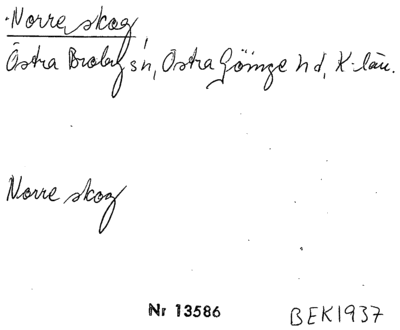 Norre skog
Östra Broby sn, Östra Göinge hd, K-län.
Norre skog
Nr 13586
BEK1937